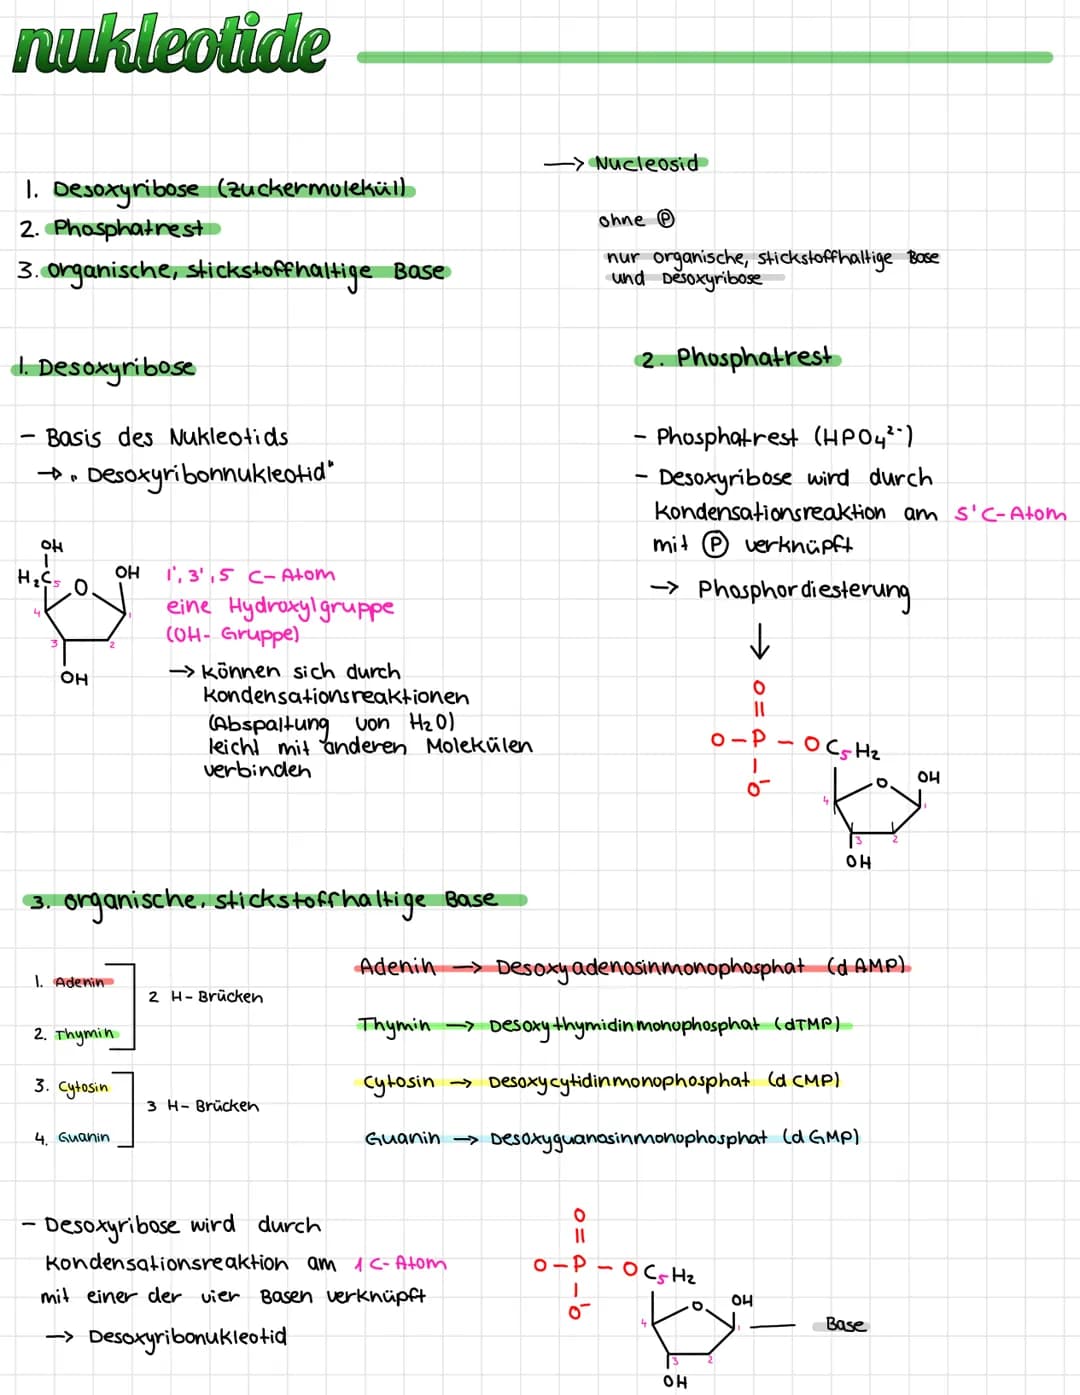 nukleotide
1. Desoxyribose (Zuckermolekül)
2. Phosphatrest
3. organische, stickstoffhaltige Base
→ Nucleosid
ohne Ⓟ
nur organische, stickstoffhaltige Base
und Desoxyribose
1. Desoxyribose
- Basis des Nukleotids
→ „Desoxyribonnukleotid"
OH
H₂C₅ O OH
4 1
3 2
OH
1', 3', 5 C-Atom
eine Hydroxylgruppe
(OH- Gruppe)
→ können sich durch
Kondensationsreaktionen
(Abspaltung von H₂O)
leicht mit anderen Molekülen
verbinden
2. Phosphatrest
- Phosphatrest (HPO₄²⁻)
- Desoxyribose wird durch
Kondensationsreaktion am 5'C-Atom
mit Ⓟ verknüpft
→ Phosphordiesterung
↓
O
||
O-P-OC₅H₂
O⁻
O OH
4 1
3 2
OH
3. organische, stickstoffhaltige Base
1. Adenin
2 H-Brücken
2. Thymin
3. Cytosin
3 H-Brücken
4. Guanin
Adenin → Desoxyadenosinmonophosphat (dAMP)
Thymin → Desoxythymidinmonophosphat (dTMP)
Cytosin → Desoxycytidinmonophosphat (dCMP)
Guanin → Desoxyguanosinmonophosphat (dGMP)
- Desoxyribose wird durch
Kondensationsreaktion am 1 C-Atom
mit einer der vier Basen verknüpft
→ Desoxyribonukleotid
O
||
O-P-OC₅H₂
O⁻
O OH
4 1 Base
3 2
OH